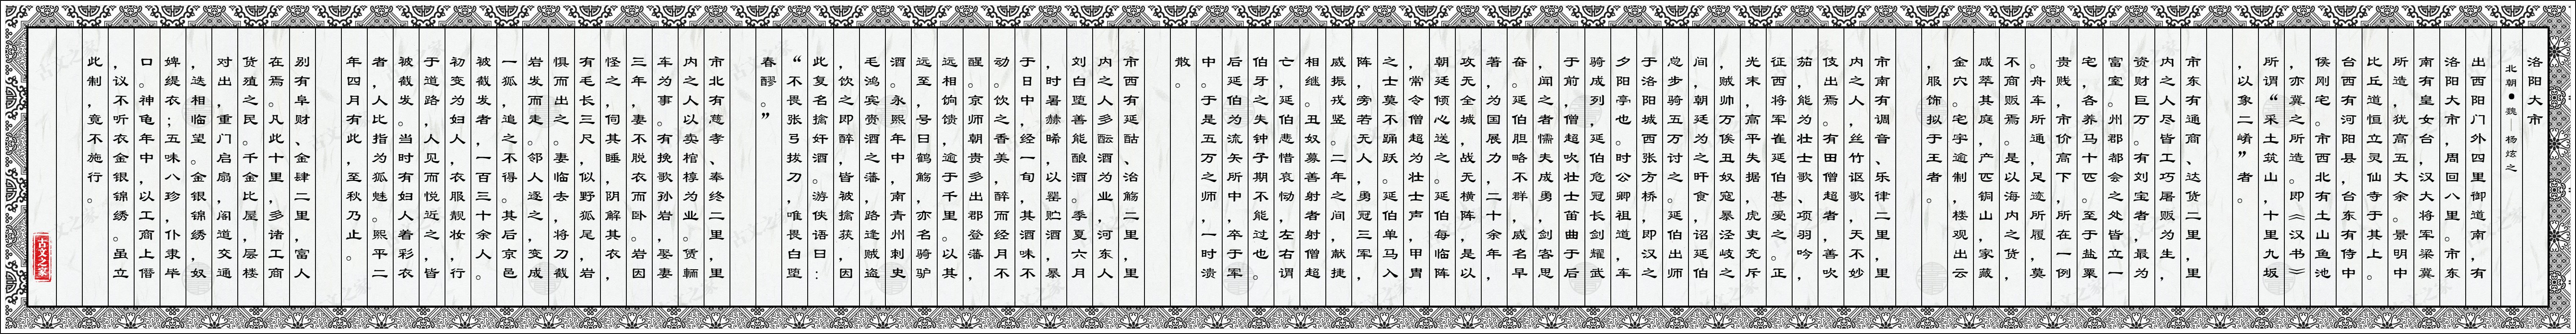 洛阳大市
北朝●魏—杨炫之
出西阳门外四里御道南，有
洛阳大市，周回八里。市东
南有皇女台，汉大将军梁冀
所造，犹高五丈余。景明中
比丘道恒立灵仙寺于其上。
台西有河阳县，台东有侍中
侯刚宅。市西北有土山鱼池
，亦冀之所造。即《汉书》
所谓“采土筑山，十里九坂
，以象二崤”者。
市东有通商、达货二里，里
内之人尽皆工巧屠贩为生，
资财巨万。有刘宝者，最为
富室。州郡都会之处皆立一
宅，各养马十匹。至于盐粟
贵贱，市价高下，所在一例
。舟车所通，足迹所履，莫
不商贩焉。是以海内之货，
咸萃其庭，产匹铜山，家藏
金穴。宅宇逾制，楼观出云
，服饰拟于王者。
市南有调音、乐律二里，里
内之人，丝竹讴歌，天下妙
伎出焉。有田僧超者，善吹
笳，能为壮士歌、项羽吟，
征西将军崔延伯甚爱之。正
光末，高平失据，虎吏充斥
，贼帅万俟丑奴寇暴泾岐之
间，朝廷为之旰食，诏延伯
总步骑五万讨之。延伯出师
于洛阳城西张方桥，即汉之
夕阳亭也。时公卿祖道，车
骑成列，延伯危冠长剑耀武
于前，僧超吹壮士笛曲于后
，闻之者懦夫成勇，剑客思
奋。延伯胆略不群，威名早
著，为国展力，二十余年，
攻无全城，战无横阵，是以
朝廷倾心送之。延伯每临阵
，常令僧超为壮士声，甲胄
之士莫不踊跃。延伯单马入
阵，旁若无人，勇冠三军，
威振戎竖。二年之间，献捷
相继。丑奴募善射者射僧超
亡，延伯悲惜哀恸，左右谓
伯牙之失钟子期不能过也。
后延伯为流矢所中，卒于军
中。于是五万之师，一时溃
散。
市西有延酤、治觞二里，里
内之人多酝酒为业，河东人
刘白堕善能酿酒。季夏六月
，时暑赫晞，以罂贮酒，暴
于日中，经一旬，其酒味不
动。饮之香美，醉而经月不
醒。京师朝贵多出郡登藩，
远相饷馈，逾于千里。以其
远至，号曰鹤觞，亦名骑驴
酒。永熙年中，南青州刺史
毛鸿宾赍酒之藩，路逢贼盗
，饮之即醉，皆被擒获，因
此复名擒奸酒。游侠语曰：
“不畏张弓拔刀，唯畏白堕
春醪。”
市北有慈孝、奉终二里，里
内之人以卖棺椁为业。赁輀
车为事。有挽歌孙岩，娶妻
三年，妻不脱衣而卧。岩因
怪之，伺其睡，阴解其衣，
有毛长三尺，似野狐尾，岩
惧而出之。妻临去，将刀截
岩发而走。邻人逐之，变成
一狐，追之不得。其后京邑
被截发者，一百三十余人。
初变为妇人，衣服靓妆，行
于道路，人见而悦近之，皆
被截发。当时有妇人着彩衣
者，人比指为狐魅。熙平二
年四月有此，至秋乃止。
别有阜财、金肆二里，富人
在焉。凡此十里，多诸工商
货殖之民。千金比屋，层楼
对出，重门启扇，阁道交通
，迭相临望。金银锦绣，奴
婢缇衣；五味八珍，仆隶毕
口。神龟年中，以工商上僭
，议不听衣金银锦绣。虽立
此制，竟不施行。
古文之家